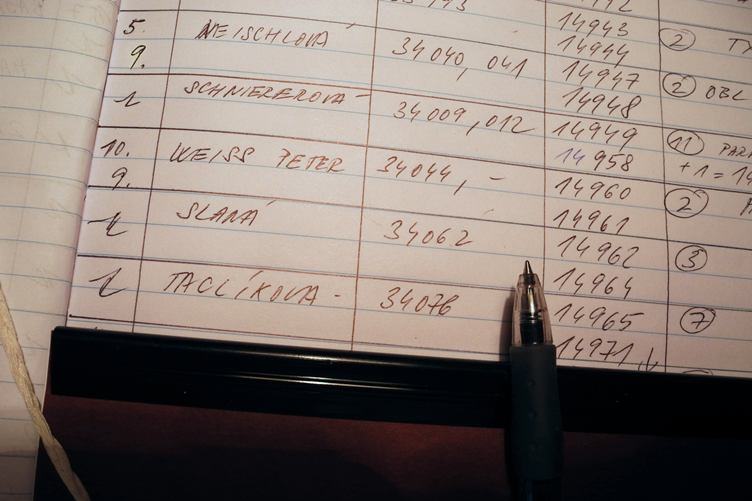 14943
5. NEISCHLOVÁ 14944 2 TX
9. 34040, 041 14947
14948 2 OBL
SCHNIEREROVÁ 34009, 012 14949
10. WEISS PETER 34044, - 14958 11
9. 14960 + 1 = 14
14961 2
SLANÁ 34062 14962
14964 3
TACLÍKOVÁ - 34076 14965 7
14971